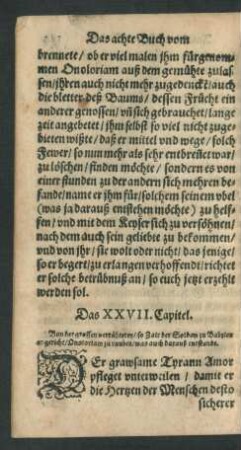 Das achte Buch vom
brennete / ob er viel malen jhm fürgenom-
men Onoloriam auß dem gemühte zulas-
sen / jhren auch nicht mehr zugedenckē / auch
die bletter deß Baums / dessen Frücht ein
anderer genossen / vñ sich gebrauchet / lange
zeit angebetet / jhm selbst so viel nicht zuge-
bieten wißte / daß er mittel vnd wege / solch
Fewer / so nun mehr als sehr entbrestet war /
zu löschen / finden möchte / sondern es von
einer stunden zu der andern sich mehren be-
fande / name er jhm für / solchem seinem vbel
(was ja darauß entstehen möchte) zu helf-
fen / vnd mit dem Keyser sich zu versöhnen /
nach dem auch sein geliebte zu bekommen /
vnd von jhr / sie wolt oder nicht / das jenige /
so er begert / zu erlangen verhoffendt / richtet
er solche betrübnuß an / so euch jetzt erzehlt
werden sol.
Das XXVII. Capitel.
Von der grossen verrähterey / so Zair der Soldan zu Babylon
an gericht / Onoloriam zu rauben / was auch darauß entstunde.
DEr grawsame Tyrann Amor
pfleget vnterweilen / damit er
die Hertzen der Menschen desto
sicherer